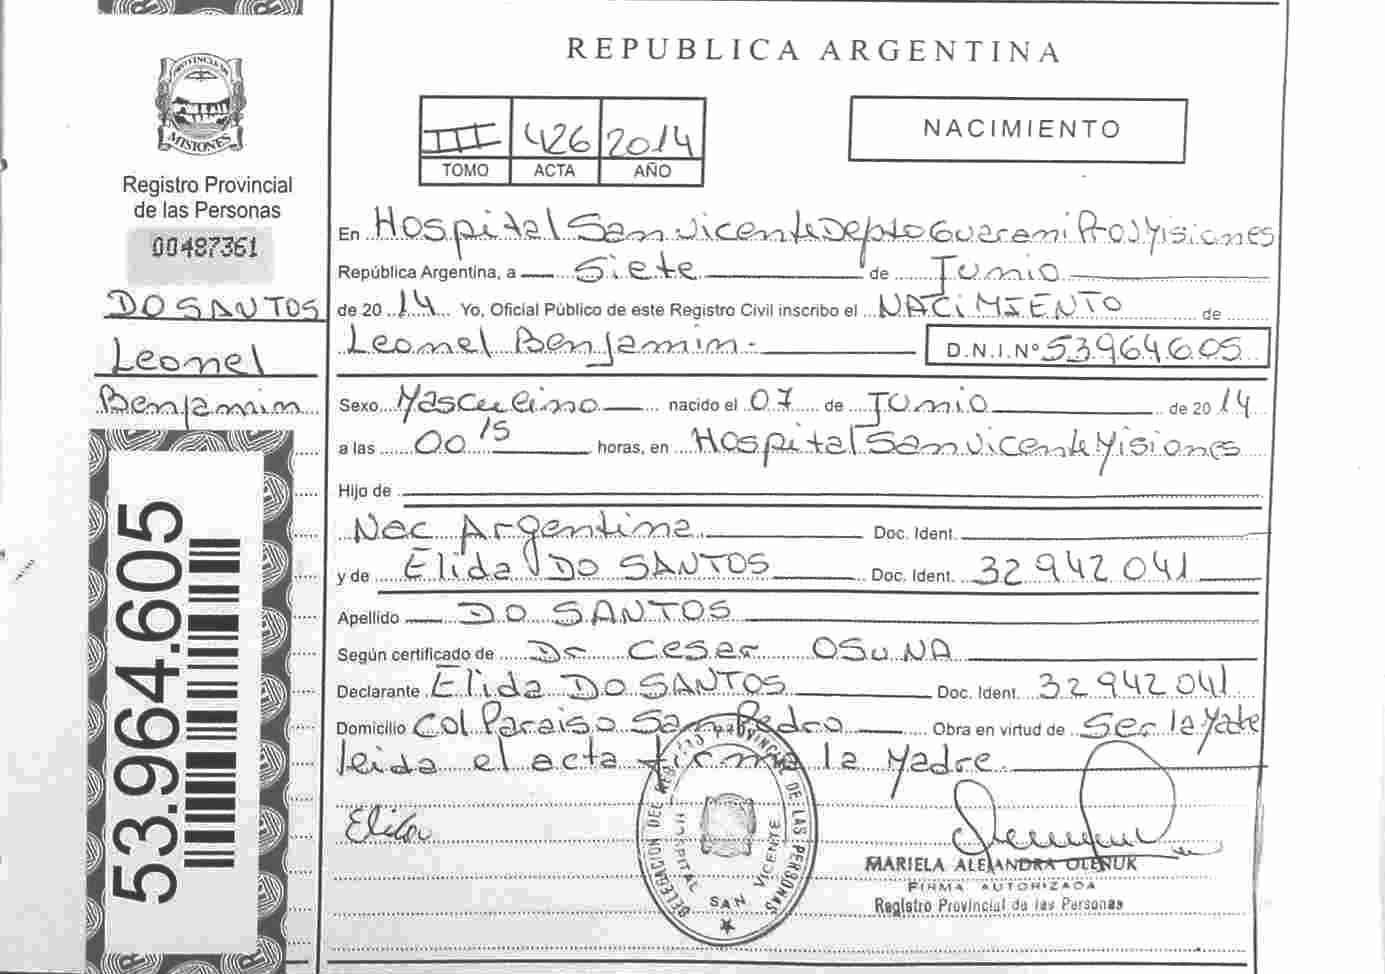 PROVINCIA DE
MISIONES
Registro Provincial
de las Personas
00487361
DO SANTOS
Leonel
Benjamin
53.964.605
REPUBLICA ARGENTINA
III 426 2014
TOMO ACTA AÑO
NACIMIENTO
En Hospital San Vicente Depto Guarani Prov Misiones
República Argentina, a Siete de Junio
de 20 14 Yo, Oficial Público de este Registro Civil inscribo el NACIMIENTO de
Leonel Benjamin.- D.N.I.Nº 53964605
Sexo Masculino nacido el 07 de Junio de 20 14
a las 00 15 horas, en Hospital San Vicente Misiones
Hijo de
Nac Argentina Doc. Ident.
y de Elida DO SANTOS Doc. Ident. 32 942 041
Apellido DO SANTOS
Según certificado de Dr Cesar OSUNA
Declarante Elida DO SANTOS Doc. Ident. 32 942 041
Domicilio Col Paraiso San Pedro Obra en virtud de Ser la Madre
leida el acta firma la Madre.
Elida
DELEGACION DEL REGISTRO PROVINCIAL DE LAS PERSONAS
HOSPITAL SAN VICENTE
MARIELA ALEJANDRA OLENUK
FIRMA AUTORIZADA
Registro Provincial de las Personas